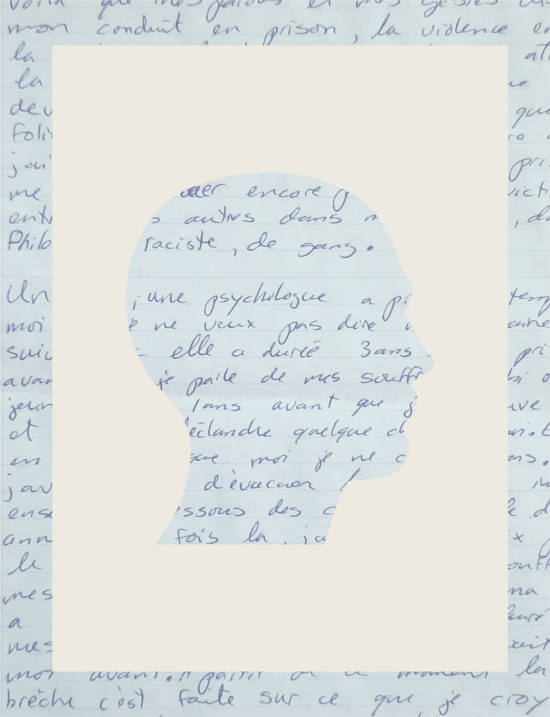 voilà que mes paroles et mes gestes
mon conduit en prison, la violence en
la
la
dev que
foli
j'ai pri
me uer encore victi
entr s autres dans m , d
Philo raciste, de gang.
Un , une psychilogue a pr temp
moi ne veux pas dire
suiv elle a durée 3ans pri
avan je parle de mes souff
jeun ans avant que
et éclanche quelque ch
en que moi je ne c ns.
jav d'évacuer l
ense essous des c
ann fois la, ja x
le ouff
mes ma
a
mes
moi avant. A partir de ce moment la
brèche c'est faite sur ce que je croy